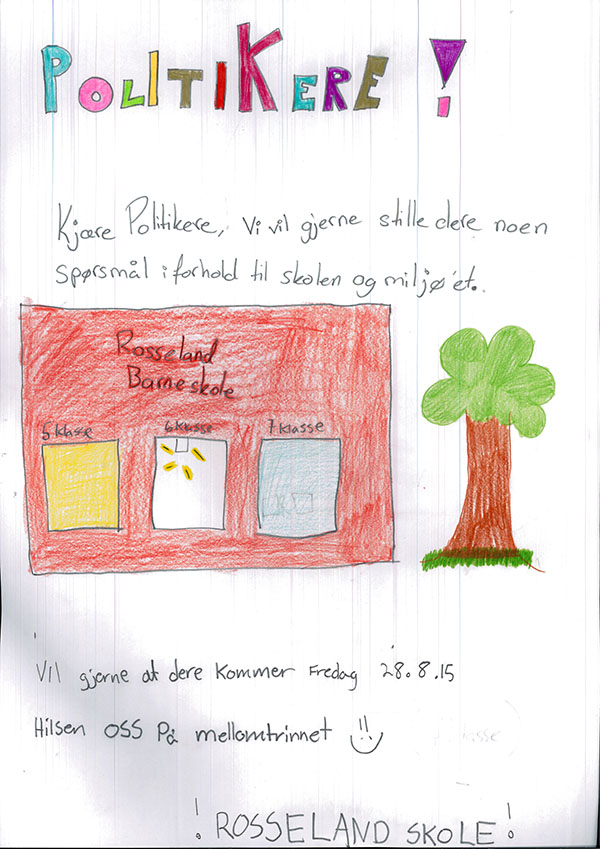 POLITIKERE !
Kjære Politikere, Vi vil gjerne stille dere noen
spørsmål i forhold til skolen og miljø'et.
Rosseland
Barneskole
5 klasse 6 klasse 7 klasse
Vil gjerne at dere kommer Fredag 28.8.15
Hilsen OSS På mellomtrinnet
! ROSSELAND SKOLE !